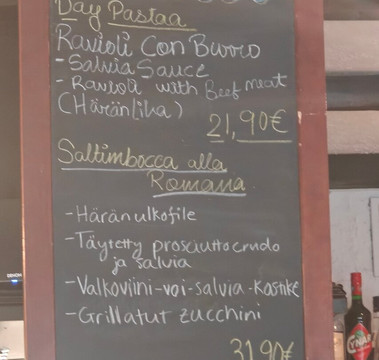 Day Pastaa
Ravioli Con Burro
- Salvia Sauce
- Ravioli with Beef meat
(Häränliha)
21,90€
Saltimbocca alla
Romana
- Härän ulkofile
- Täytetty prosciutto crudo
ja salvia
- Valkoviini-voi-salvia-kastike
- Grillatut zucchini
31,90€
CYNAR